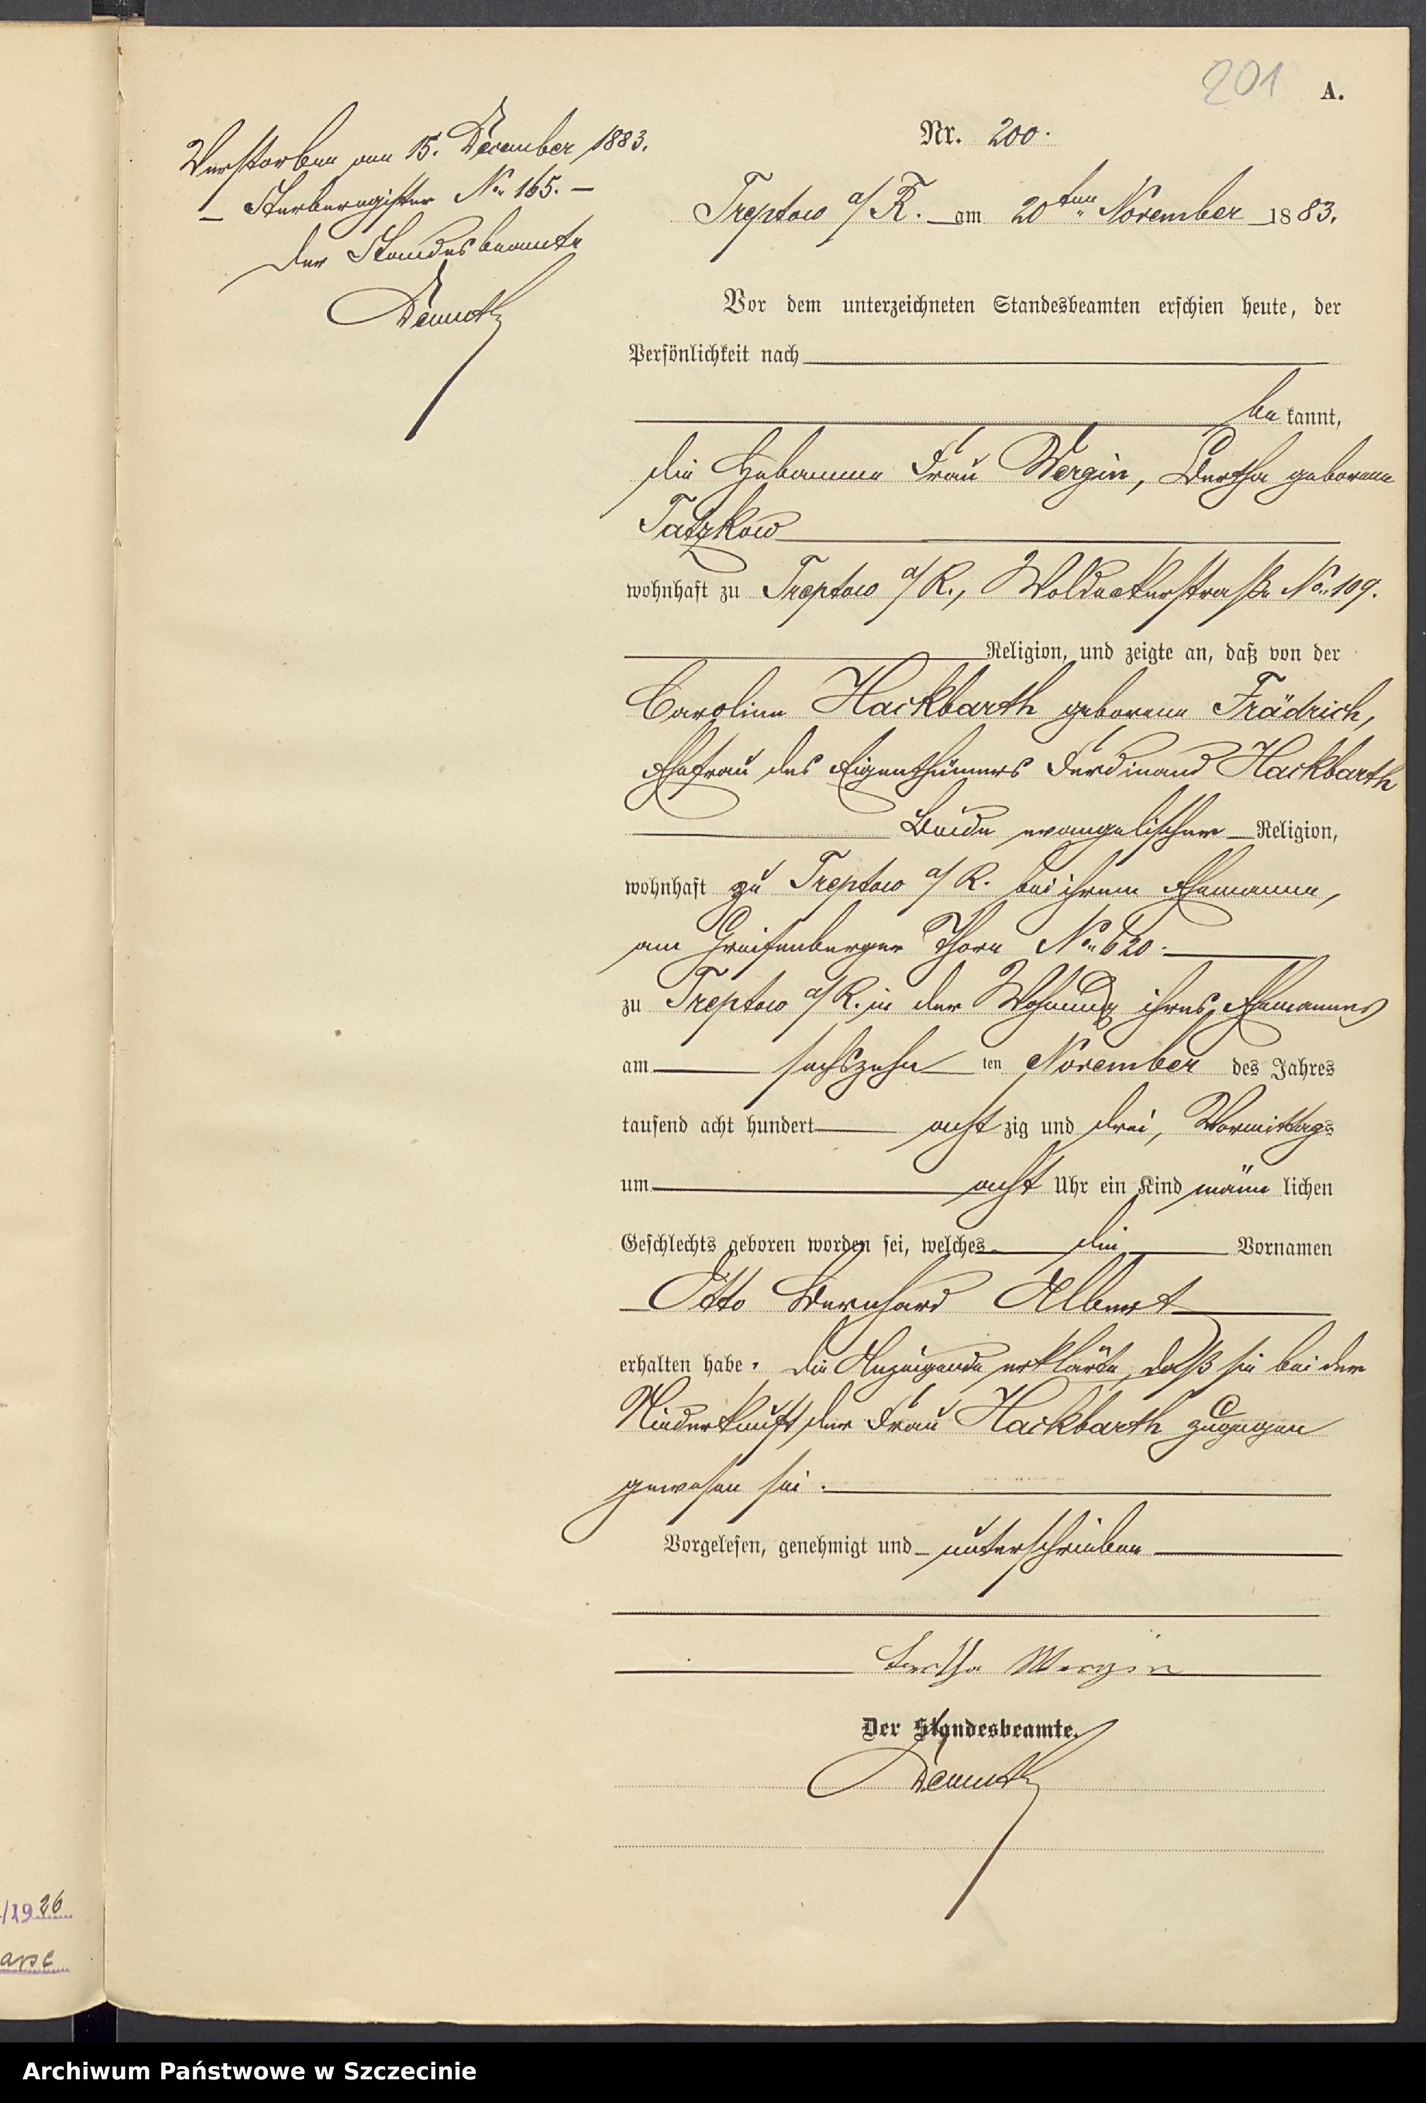 201
A.
Verstorben am 15. December 1883.
– Sterberegister No 165. –
Der Standesbeamte
Nr. 200.
Treptow a/R. am 20ten November 1883.
Vor dem unterzeichneten Standesbeamten erschien heute, der
Persönlichkeit nach
bekannt,
die Hebamme Frau Wergin, Bertha geborene
Tatzkow
wohnhaft zu Treptow a/R., Woldeckerstraße No. 109.
Religion, und zeigte an, daß von der
Caroline Hackbarth geborene Frädrich,
Ehefrau des Eigenthümers Ferdinand Hackbarth
Beide evangelischer Religion,
wohnhaft zu Treptow a/R. bei ihrem Ehemanne,
am Greifenberger Thore No 620.
zu Treptow a/R. in der Wohnung ihres Ehemannes
am sechszehn ten November des Jahres
tausend acht hundert acht zig und drei, Vormittags
um acht Uhr ein Kind männ lichen
Geschlechts geboren worden sei, welches die Vornamen
Otto Bernhard Albert
erhalten habe. Die Anzeigende erklärte, daß sie bei der
Niederkunft der Frau Hackbarth zugegen
gewesen sei.
Vorgelesen, genehmigt und unterschrieben
Bertha Wergin
Der Standesbeamte.
/1926
Archiwum Państwowe w Szczecinie